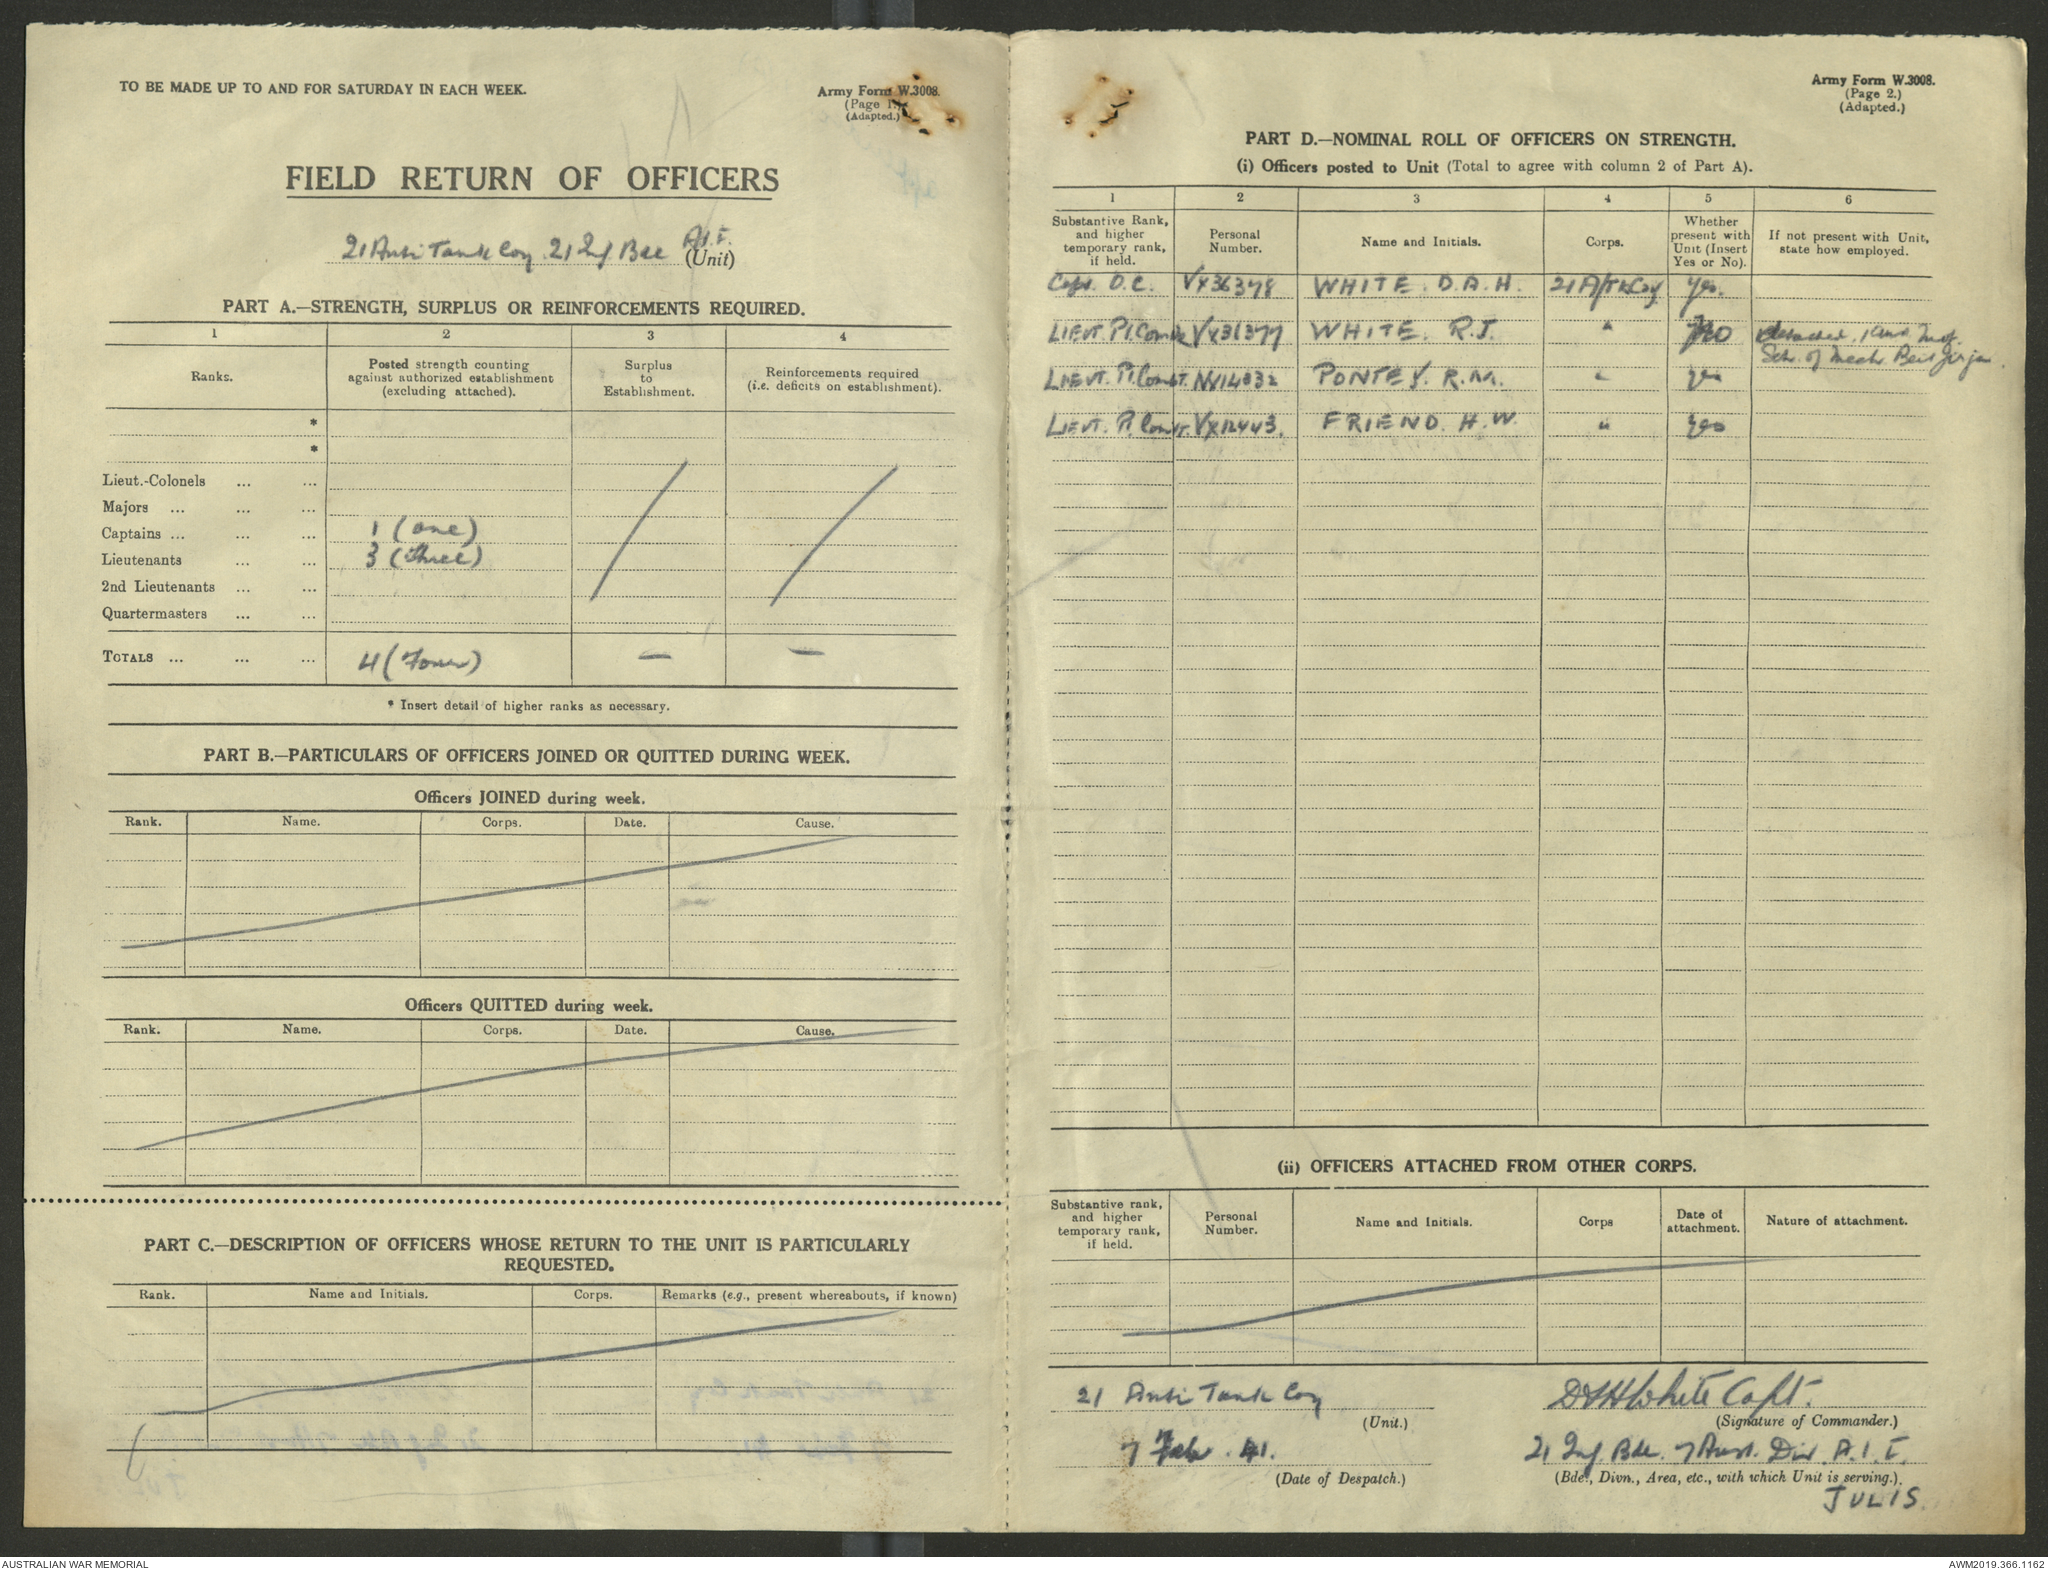 TO BE MADE UP TO AND FOR SATURDAY IN EACH WEEK.
Army Form W.3008.
(Page 1.)
(Adapted.)
FIELD RETURN OF OFFICERS
21 Anti Tank Coy 21 Inf Bde A.I.F.
(Unit)
PART A.—STRENGTH, SURPLUS OR REINFORCEMENTS REQUIRED.
1 2 3 4
Ranks.
Posted strength counting against authorized establishment (excluding attached).
Surplus to Establishment.
Reinforcements required (i.e. deficits on establishment).
*
*
Lieut.-Colonels ... ...
Majors ... ... ...
Captains ... ... ... 1 (one)
Lieutenants ... ... 3 (three)
2nd Lieutenants ... ...
Quartermasters ... ...
TOTALS ... ... ... 4 (Four) — —
* Insert detail of higher ranks as necessary.
PART B.—PARTICULARS OF OFFICERS JOINED OR QUITTED DURING WEEK.
Officers JOINED during week.
Rank. Name. Corps. Date. Cause.
Officers QUITTED during week.
Rank. Name. Corps. Date. Cause.
PART C.—DESCRIPTION OF OFFICERS WHOSE RETURN TO THE UNIT IS PARTICULARLY
REQUESTED.
Rank. Name and Initials. Corps. Remarks (e.g., present whereabouts, if known)
Army Form W.3008.
(Page 2.)
(Adapted.)
PART D.—NOMINAL ROLL OF OFFICERS ON STRENGTH.
(i) Officers posted to Unit (Total to agree with column 2 of Part A).
1 2 3 4 5 6
Substantive Rank, and higher temporary rank, if held.
Personal Number.
Name and Initials.
Corps.
Whether present with Unit (Insert Yes or No).
If not present with Unit, state how employed.
Capt. O.C. VX36378 WHITE. D.A.H. 21 A/Tk Coy Yes.
LIEUT. Pl. Comdr VX31377 WHITE. R.J. " No detached
Sch. of Mech. Beit Jirja.
LIEUT. Pl. Comdr. NX14832 PONTEY. R.M. " yes
LIEUT. Pl. Comdr. VX12443. FRIEND. H.W. " yes
(ii) OFFICERS ATTACHED FROM OTHER CORPS.
Substantive rank, and higher temporary rank, if held.
Personal Number.
Name and Initials.
Corps
Date of attachment.
Nature of attachment.
21 Anti Tank Coy
(Unit.)
DAHWhite Capt.
(Signature of Commander.)
7 Feb. 41.
(Date of Despatch.)
21 Inf. Bde. 7 Aust. Div. A.I.F.
(Bde., Divn., Area, etc., with which Unit is serving.)
JULIS.
AUSTRALIAN WAR MEMORIAL
AWM2019.366.1162